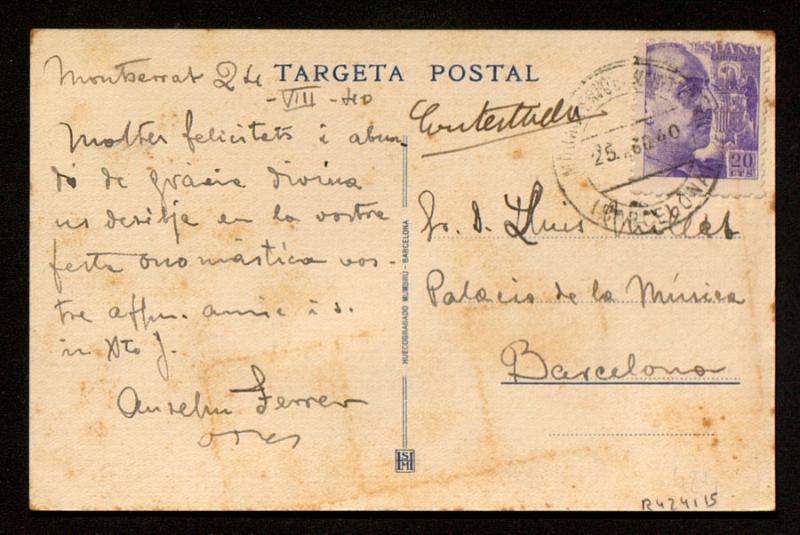 Montserrat 24
-VIII-40
Moltes felicitats i abun-
dó de gràcia divina
us desitja en la vostra
festa onomástica vos-
tre affm. amic i s.
in Xto J.
Anselm Ferrer
TARGETA POSTAL
Contestada
ESPAÑA
20
CTS
25 AGO 40
BARCELONA
Sr. D. Lluis Millet
Palacio de la Música
Barcelona
HUECOGRABADO MUMBRÚ - BARCELONA
R424115